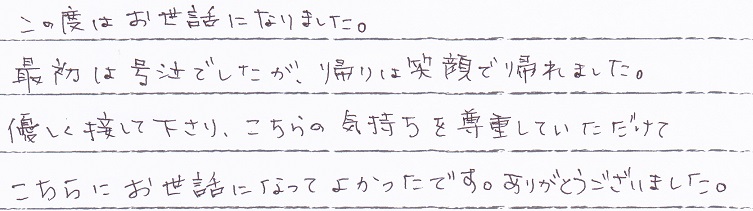 この度はお世話になりました。
最初は号泣でしたが、帰りは笑顔で帰れました。
優しく接して下さり、こちらの気持ちを尊重していただけて
こちらにお世話になってよかったです。ありがとうございました。